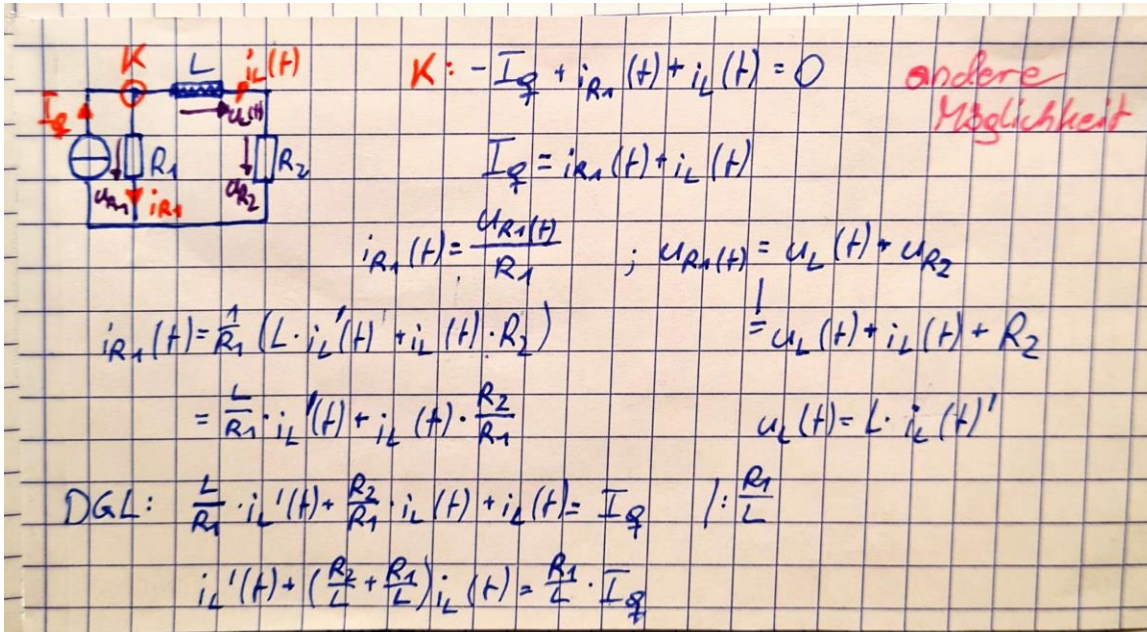 K
L
i_L(t)
I_q
u_L(t)
R1
R2
u_R1
i_R1
u_R2
K: - I_q + i_R1(t) + i_L(t) = 0
andere
Möglichkeit
I_q = i_R1(t) + i_L(t)
i_R1(t) = u_R1(t)/R1 ; u_R1(t) = u_L(t) + u_R2
i_R1(t) = 1/R1 (L · i_L'(t) + i_L(t) · R2)
= u_L(t) + i_L(t) + R2
= L/R1 · i_L'(t) + i_L(t) · R2/R1
u_L(t) = L · i_L(t)'
DGL: L/R1 · i_L'(t) + R2/R1 · i_L(t) + i_L(t) = I_q /: R1/L
i_L'(t) + (R2/L + R1/L) i_L(t) = R1/L · I_q